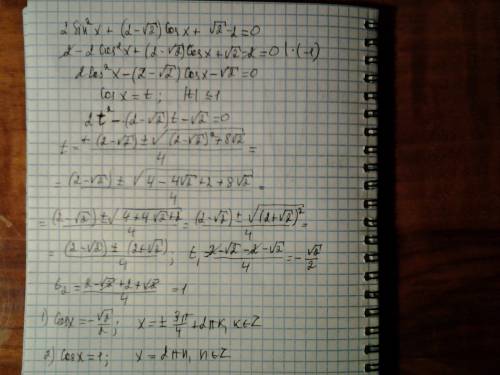 2 sin²x + (2-√2)cosx + √2-2=0
2-2cos²x+(2-√2)cosx+√2-2=0 |·(-1)
2cos²x-(2-√2)cosx-√2=0
cosx=t; |t|≤1
2t²-(2-√2)t-√2=0
t=+(2-√2)±√((2-√2)²+8√2)/4=
=(2-√2)±√(4-4√2+2+8√2)/4=
=(2-√2)±√(4+4√2+2)/4=(2-√2)±√((2+√2)²)/4=
=(2-√2)±(2+√2)/4; t₁=2-√2-2-√2/4=-√2/2
t₂=2-√2+2+√2/4=1
1) cosx=-√2/2; x=±3π/4+2πk, k∈Z
2) cosx=1; x=2πn, n∈Z